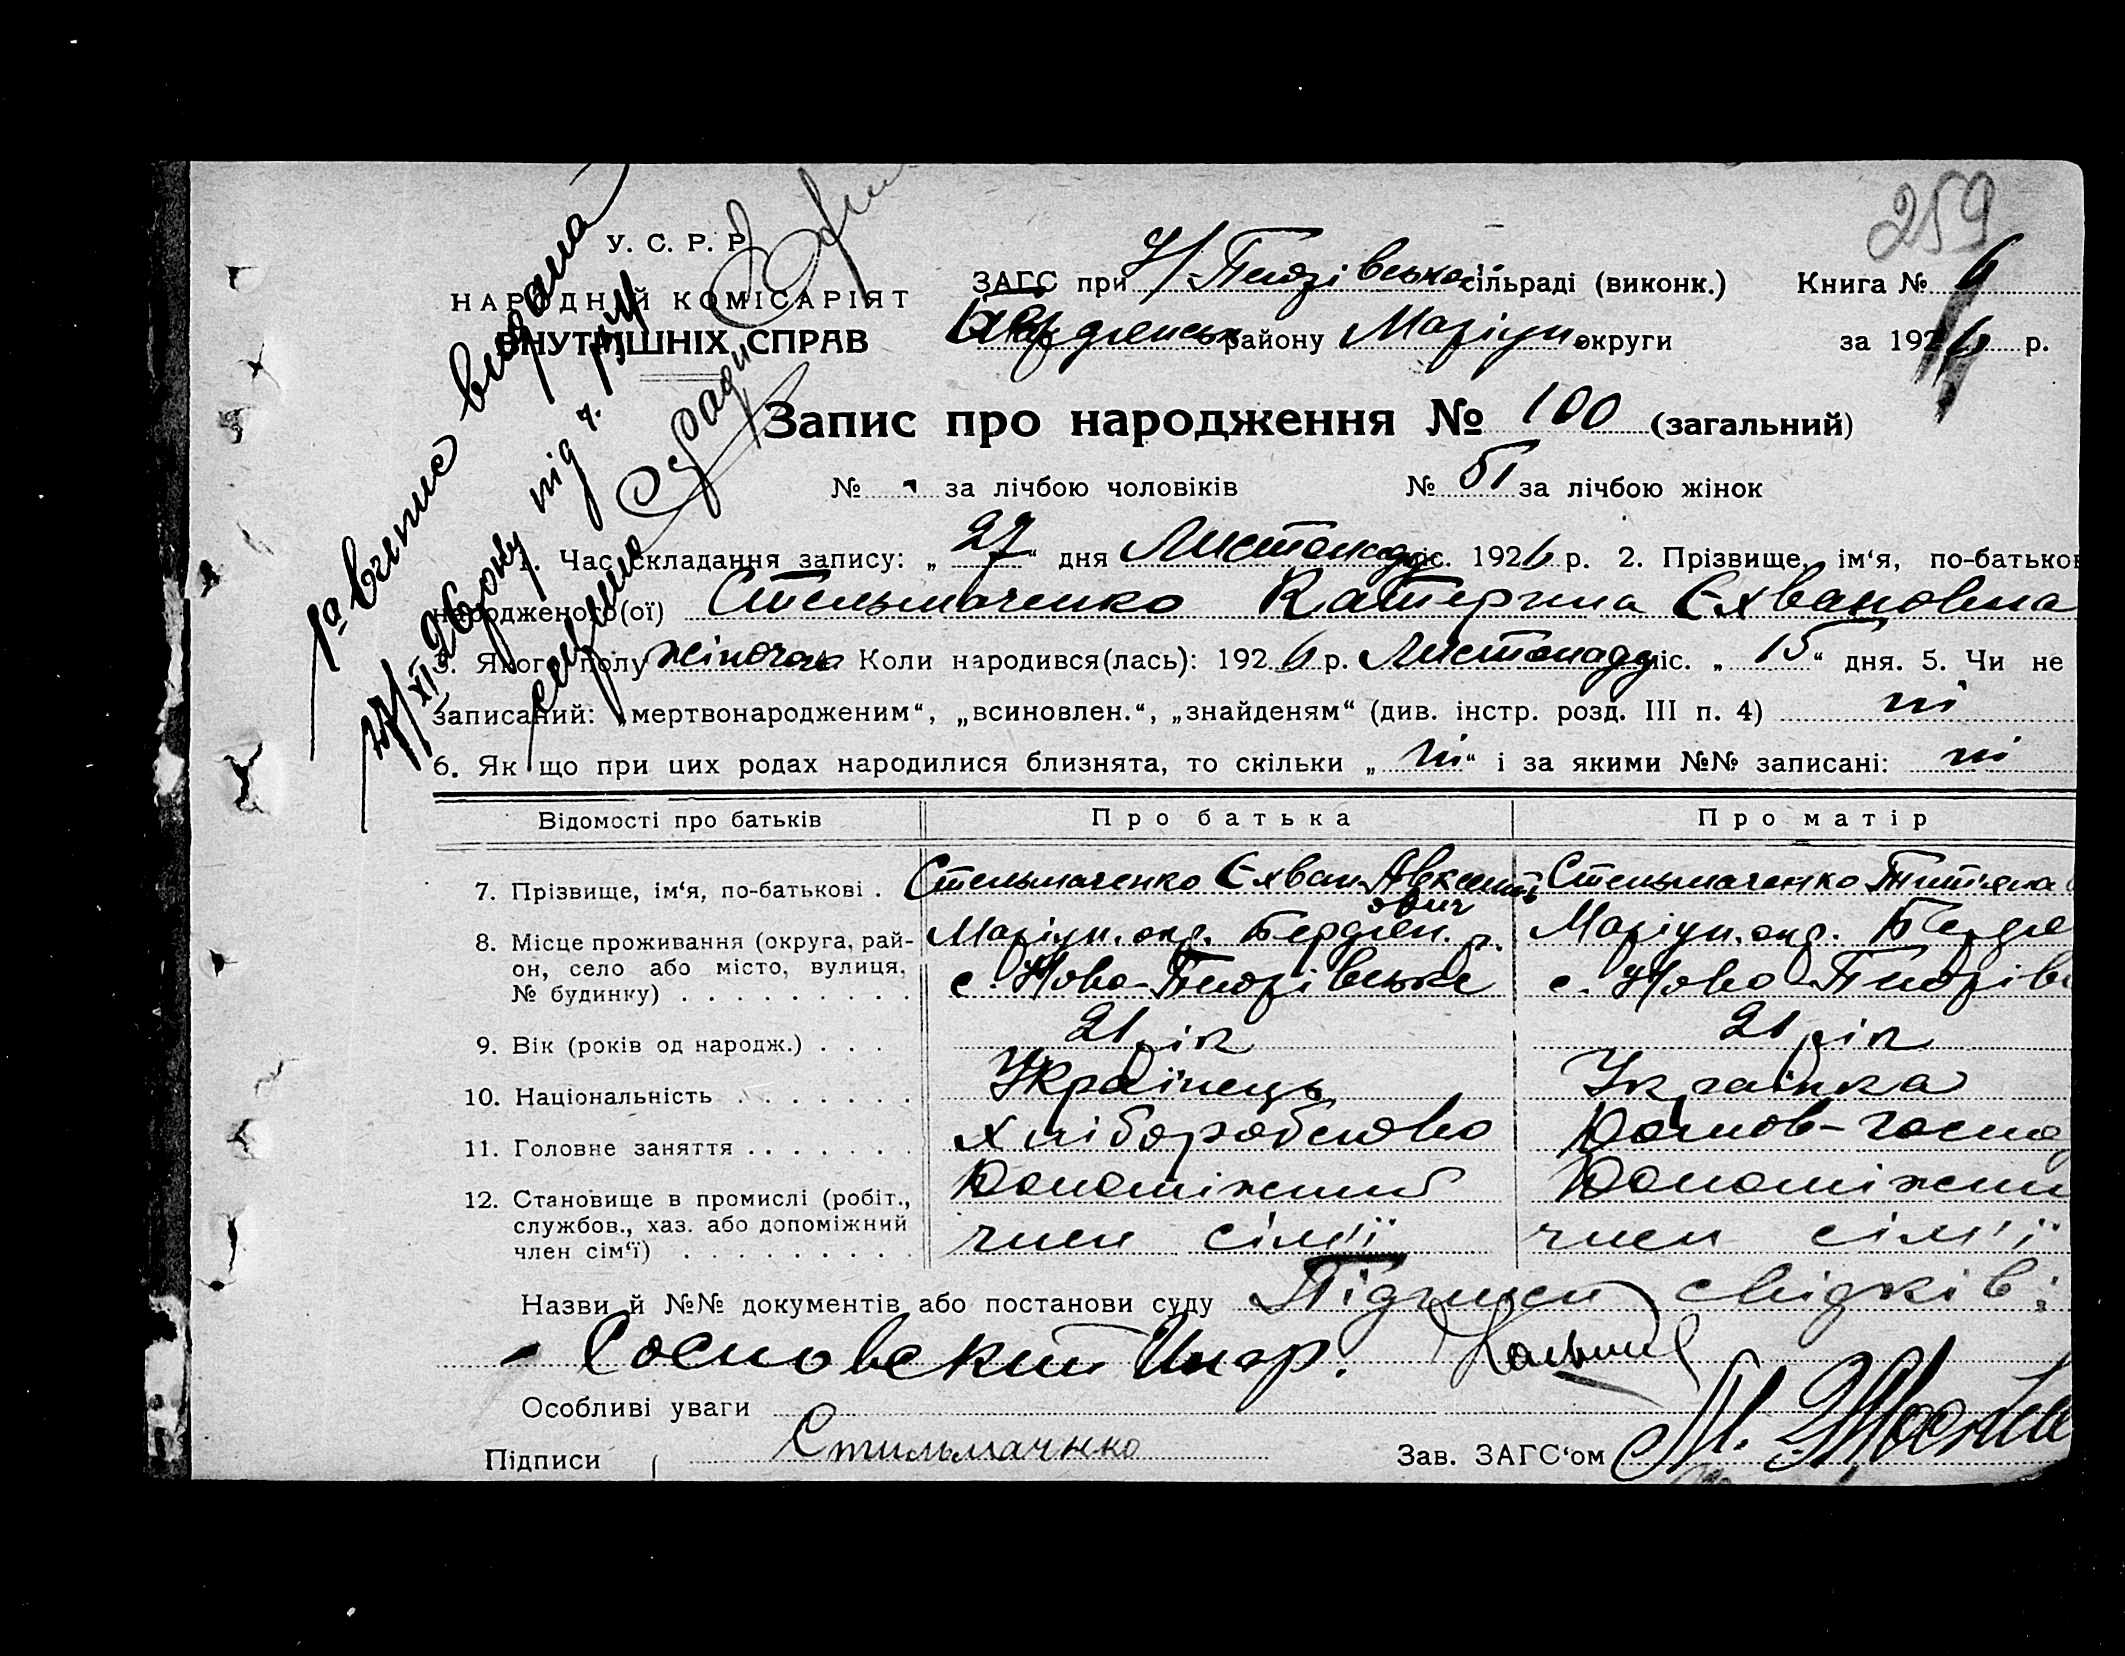 259
У. С. Р. Р.
НАРОДНИЙ КОМІСАРІЯТ
ВНУТРІШНІХ СПРАВ
ЗАГС при сільраді (виконк.) Книга № 6
району Маріуп. округи за 1926 р.
Запис про народження № 100 (загальний)
№ - за лічбою чоловіків № 51 за лічбою жінок
1. Час складання запису: „ 27 “ дня Листопаду міс. 1926 р. 2. Прізвище, ім‘я, по-батькові
народженого(ої) Стельмаченко Катерина Єхвановна
3. Якого полу жіночого Коли народився(лась): 1926 р. Листопаду міс. „ 15 “ дня. 5. Чи не
записаний: „мертвонародженим“, „всиновлен.“, „знайденям“ (див. інстр. розд. III п. 4) ні
6. Як що при цих родах народилися близнята, то скільки „ ні “ і за якими №№ записані: ні
Відомості про батьків Про батька Про матір
7. Прізвище, ім‘я, по-батькові . Стельмаченко Єхван Стельмаченко
8. Місце проживання (округа, рай- Маріуп. окр. Бердян. р. Маріуп. окр. Бердя
он, село або місто, вулиця, с. Ново- с. Ново-
№ будинку) . . . . . . . . .
9. Вік (років од народж.) . . . 21 рік 21 рік
10. Національність . . . . . . . Українець Українка
11. Головне заняття . . . . . . . Хліборобство Домов-госпо
12. Становище в промислі (робіт., Допоміжний Допоміжни
службов., хаз. або допоміжний
член сім‘ї) . . . . . . . . член сім'ї член сім'ї
Назви й №№ документів або постанови суду Підписи свідків:
- Сосновский
Особливі уваги
Підписи ( Стильмачнко Зав. ЗАГС‘ом
видана
26 року під ч.